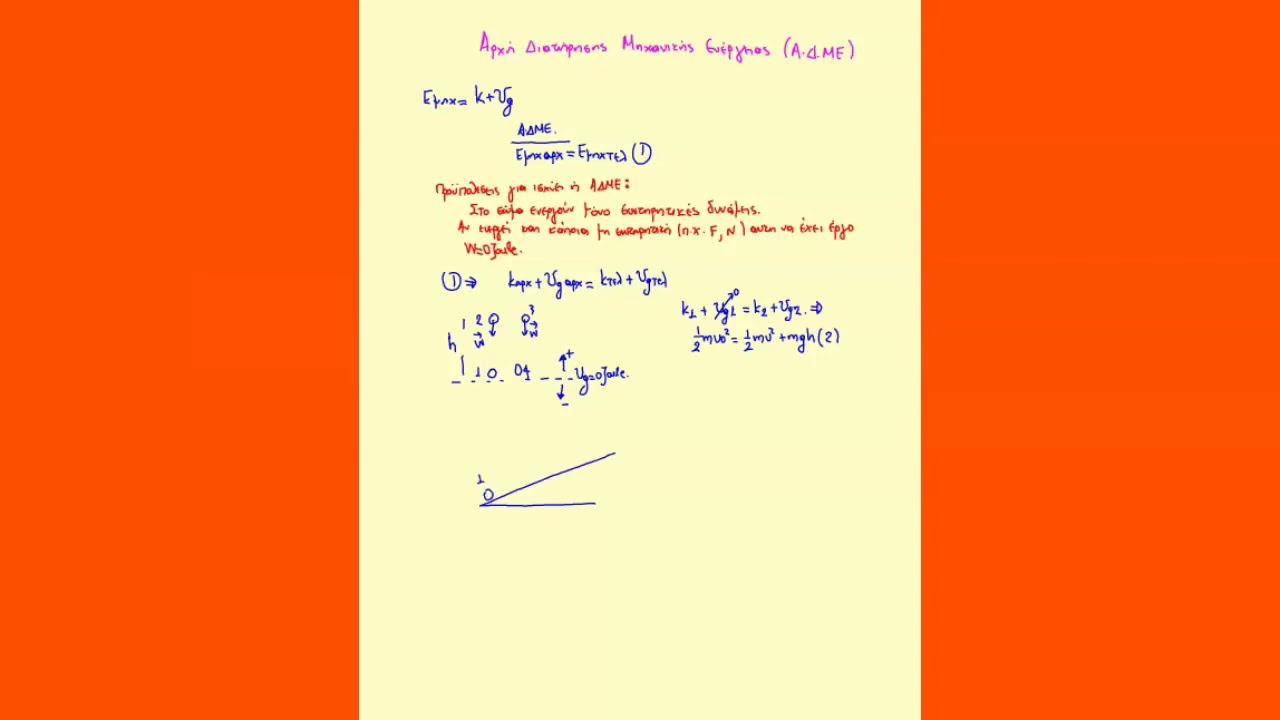 Αρχή Διατήρησης Μηχανικής Ενέργειας (Α.Δ.ΜΕ)
Εμηχ= k+Ug
ΑΔΜΕ.
Εμηχαρχ=Εμηχτελ ①
Προϋποθέσεις για ισχύει η ΑΔΜΕ:
Στο σώμα ενεργούν μόνο συντηρητικές δυνάμεις.
Αν ενεργεί και κάποια μη συντηρητική (π.χ. F, N) αυτη να έχει έργο
W=0Joule.
①⇒ kαρχ+Ugαρχ=kτελ+Ugτελ
k1+Ug1⁰=k2+Ug2⇒
½mυ0²=½mυ²+mgh(2)
1 2 3
h w w
1 4 + Ug=0Joule.
-
1